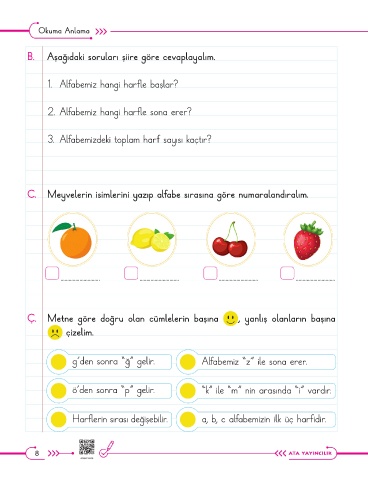 Okuma Anlama
B. Aşağıdaki soruları şiire göre cevaplayalım.
1. Alfabemiz hangi harfle başlar?
2. Alfabemiz hangi harfle sona erer?
3. Alfabemizdeki toplam harf sayısı kaçtır?
C. Meyvelerin isimlerini yazıp alfabe sırasına göre numaralandıralım.
Ç. Metne göre doğru olan cümlelerin başına , yanlış olanların başına
çizelim.
g'den sonra "ğ" gelir.
Alfabemiz "z" ile sona erer.
ö'den sonra "p" gelir.
"k" ile "m" nin arasında "i" vardır.
Harflerin sırası değişebilir.
a, b, c alfabemizin ilk üç harfidir.
8
ATA YAYINCILIK